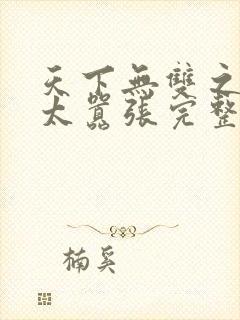 天下無雙之
太囂張完整
楠奚